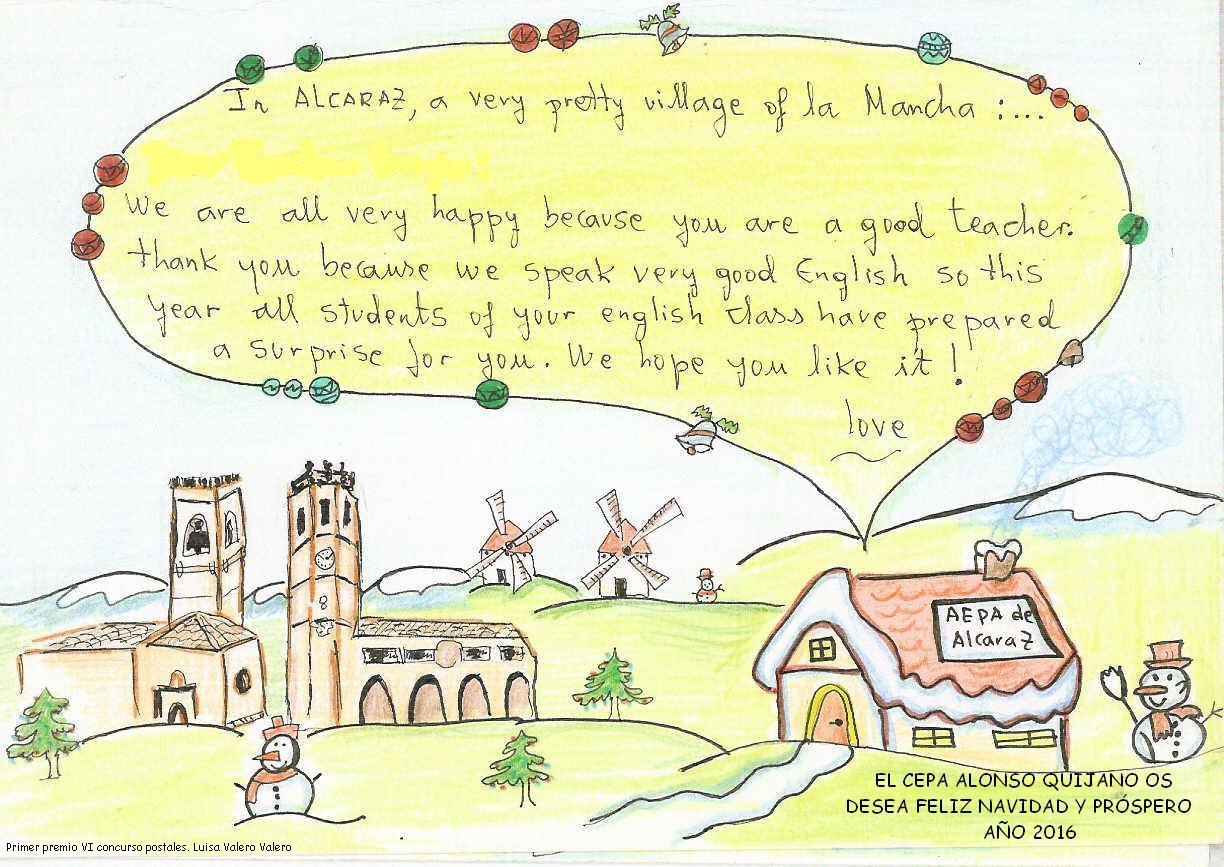 In ALCARAZ, a very pretty village of la Mancha :...
We are all very happy because you are a good teacher.
thank you because we speak very good English so this
year all students of your english class have prepared
a surprise for you. We hope you like it !
love
AEPA de
Alcaraz
EL CEPA ALONSO QUIJANO OS
DESEA FELIZ NAVIDAD Y PRÓSPERO
AÑO 2016
Primer premio VI concurso postales. Luisa Valero Valero